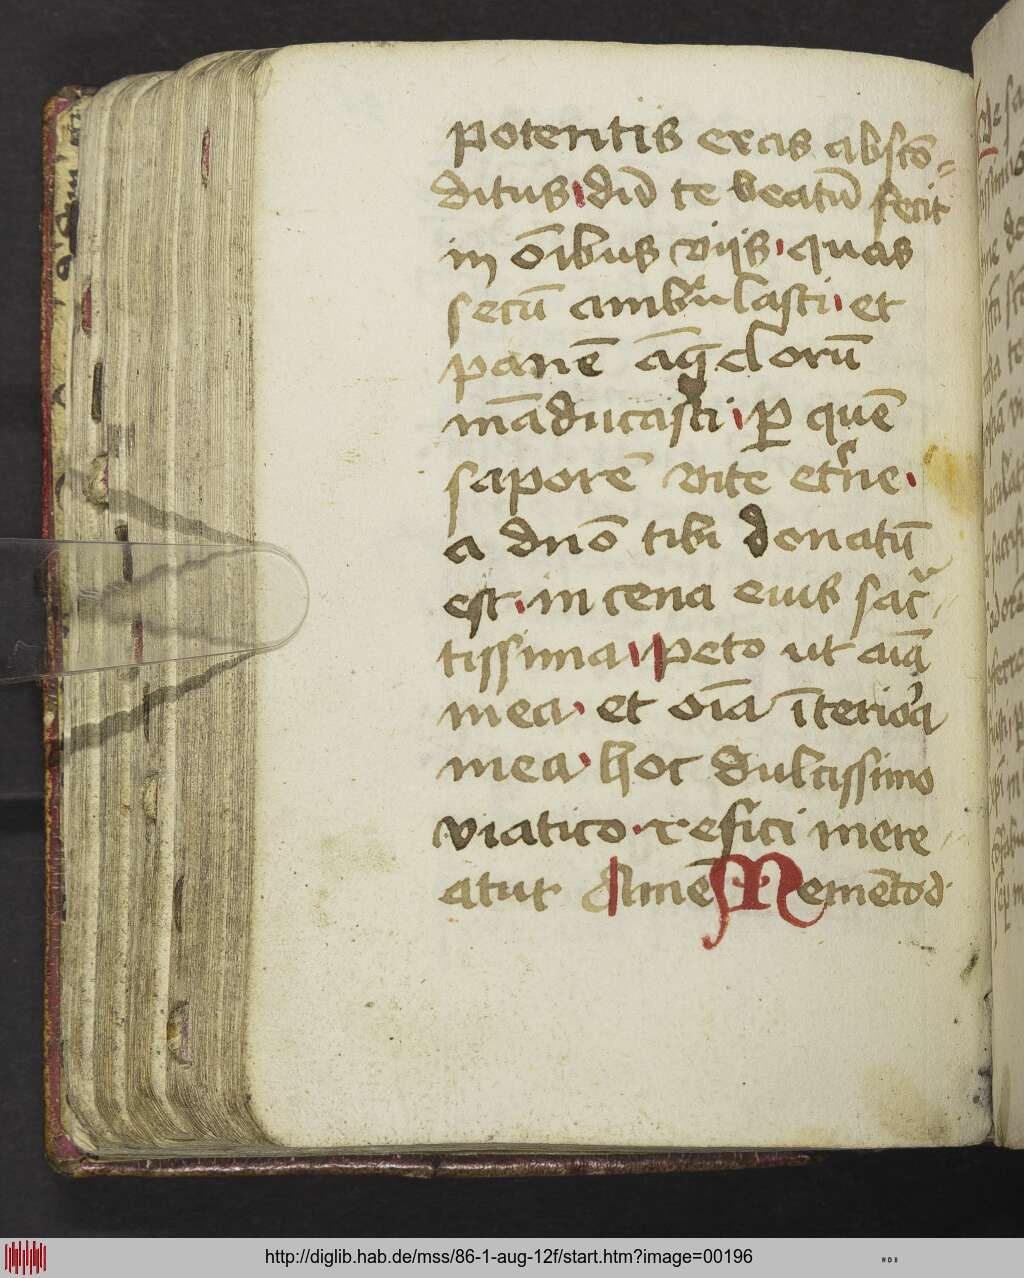 potentis eras absco᷑=
ditus diu᷑ te beatu᷑ fecit
in o᷑ibus viis quas
secu᷑ ambulasti et
pane᷑ a᷑geloru᷑
ma᷑ducasti per que᷑
sapore᷑ vite et᷑ne
a dn᷑o tibi donatu᷑
est in cena eius sac᷑ᵃ
tissima peto ut ai᷑a
mea et oi᷑a i᷑teriora
mea hoc dulcissimo
viatico refici mere
atur Ame᷑ Meme᷑to d
http://diglib.hab.de/mss/86-1-aug-12f/start.htm?image=00196